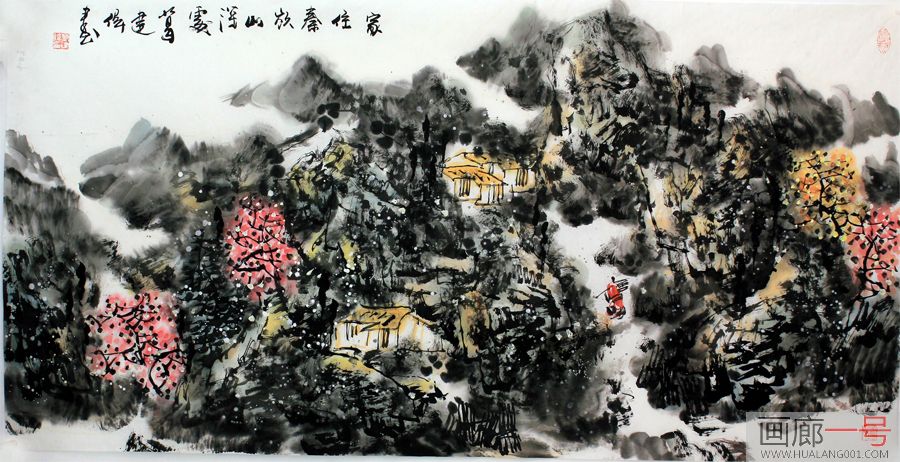 家住秦岭山深處葛建偉
画廊一号
WWW.HUALANG001.COM